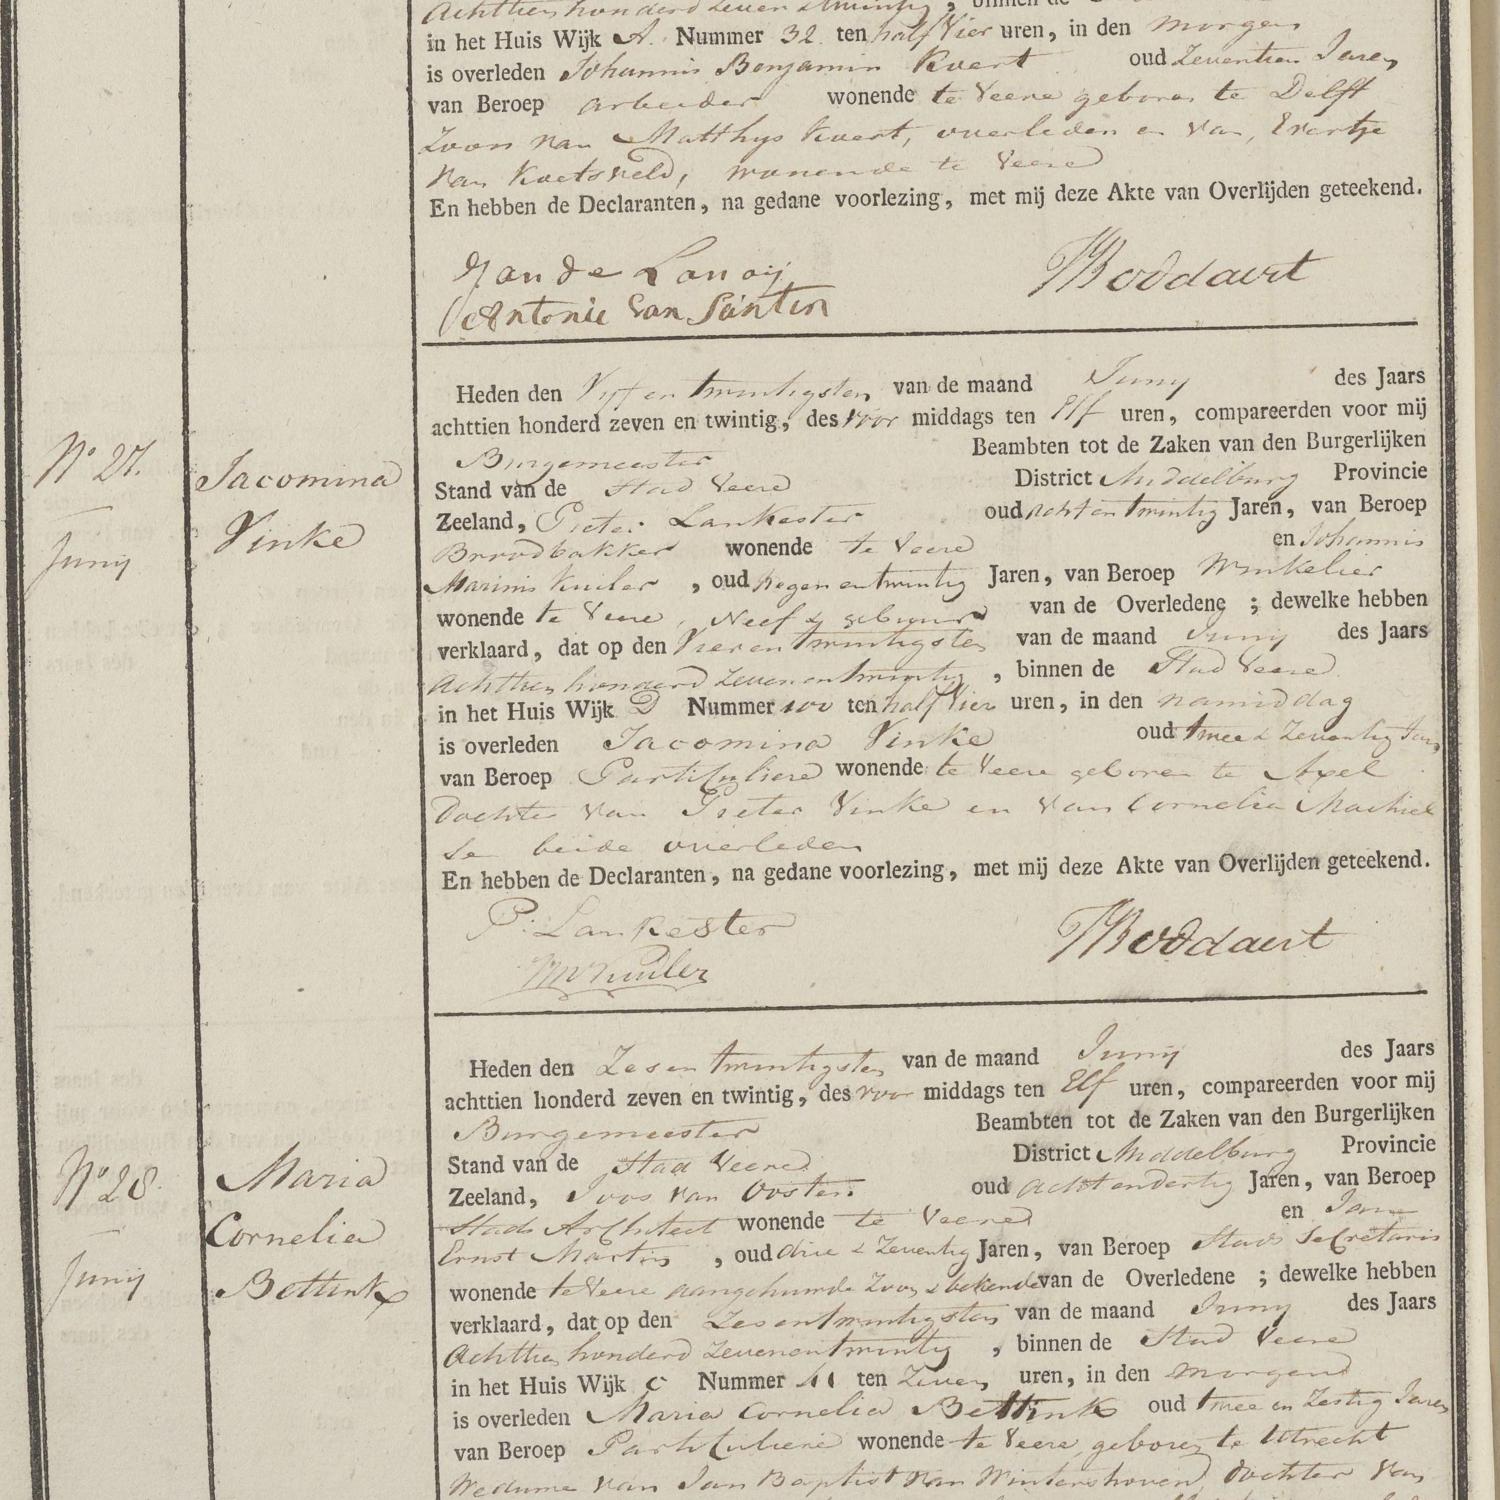 Achttien honderd zeven & twintig, binnen de
in het Huis Wijk A. Nummer 32 ten half Vier uren, in den morgen
is overleden Johannis Benjamin Kvert oud Zeventien Jaren,
van Beroep arbeider wonende te Veere geboren te Delft
Zoon van Matthys Kvert, overleden en van, Evertje
van Koetsveld, wonende te Veere
En hebben de Declaranten, na gedane voorlezing, met mij deze Akte van Overlijden geteekend.
Jan de Lanoij
Boddaert
Antonie van Santen
Heden den Vijf en twintigsten van de maand Junij des Jaars
achttien honderd zeven en twintig, des voor middags ten Elf uren, compareerden voor mij
Burgemeester Beambten tot de Zaken van den Burgerlijken
Stand van de Stad Veere District Middelburg Provincie
Zeeland, Pieter Lankester oud acht en twintig Jaren, van Beroep
Broodbakker wonende te Veere en Johannis
Marinis Kuiler, oud negen en twintig Jaren, van Beroep Winkelier
wonende te Veere, Neef & gebuur van de Overledene; dewelke hebben
verklaard, dat op den Vier en twintigsten van de maand Junij des Jaars
Achttien honderd zeven en twintig, binnen de Stad Veere
in het Huis Wijk D Nummer 100 ten half Vier uren, in den namiddag
is overleden Jacomina Vinke oud twee & Zeventig Jaren
van Beroep Particuliere wonende te Veere geboren te Axel
Dochter van Pieter Vinke en van Cornelia Machiel
se beide overleden
En hebben de Declaranten, na gedane voorlezing, met mij deze Akte van Overlijden geteekend.
P. Lankester
Boddaert
Kuiler
No 27.
Junij
Jacomina
Vinke
Heden den Zes en twintigsten van de maand Junij des Jaars
achttien honderd zeven en twintig, des voor middags ten Elf uren, compareerden voor mij
Burgemeester Beambten tot de Zaken van den Burgerlijken
Stand van de Stad Veere District Middelburg Provincie
Zeeland, Joos van Oosten oud acht en dertig Jaren, van Beroep
Stads Architect wonende te Veere en Jan
Ernst Martin, oud drie & Zeventig Jaren, van Beroep Stads Secretaris
wonende te Veere aangehuwde Zoon & bekende van de Overledene; dewelke hebben
verklaard, dat op den Zes en twintigsten van de maand Junij des Jaars
Achttien honderd Zeven en twintig, binnen de Stad Veere
in het Huis Wijk C Nummer 41 ten Zeven uren, in den morgend
is overleden Maria Cornelia Bettink oud twee en Zestig Jaren
van Beroep Particuliere wonende te Veere, geboren te Utrecht
Weduwe van Jan Baptist van Wintershoven, dochter van
No 28.
Junij
Maria
Cornelia
Bettink